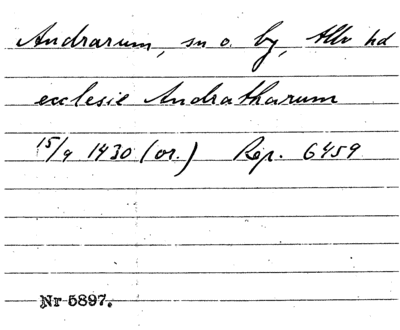 Andrarum, sn o. by, Alb hd
ecclesie Andratharum
15/9 1430 (or.) Rep. 6459
Nr 5897.